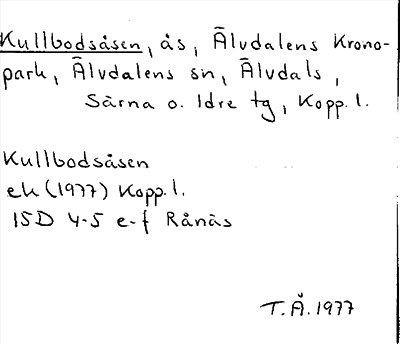 Kullbodsåsen, ås, Älvdalens Krono-
park, Älvdalens sn, Älvdals,
Särna o. Idre tg, Kopp.l.
Kullbodsåsen
ek (1977) Kopp.l.
15D 4-5 e-f Rånäs
T.Å. 1977